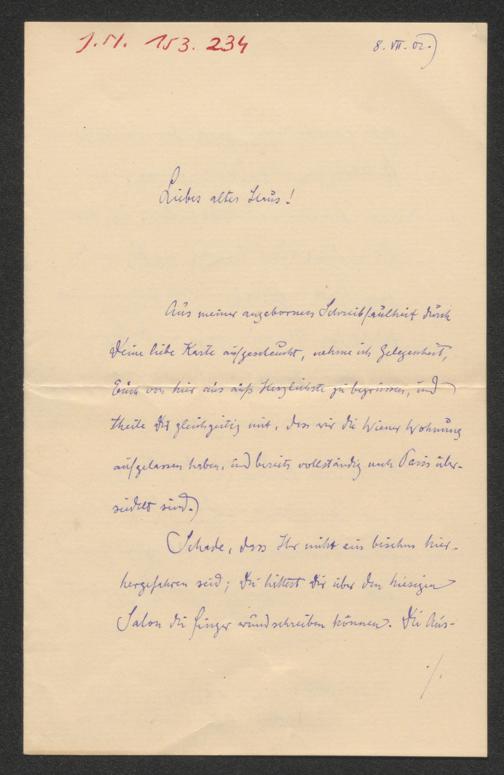 J.N. 153.234
8. VII. 02.
Liebes altes Haus!
Aus meiner angebornen Schreibfaulheit durch
Deine liebe Karte aufgescheucht, nehme ich Gelegenheit,
Euch von hier aus aufs Herzlichste zu begrüssen, und
theile Dir gleichzeitig mit, dass wir die Wiener Wohnung
aufgelassen haben, und bereits vollständig nach Paris über-
siedelt sind.
Schade, dass Ihr nicht ein bischen hier-
hergefahren seid; Du hättest Dir über den hiesigen
Salon die Finger wundschreiben können. Die Aus-
./.